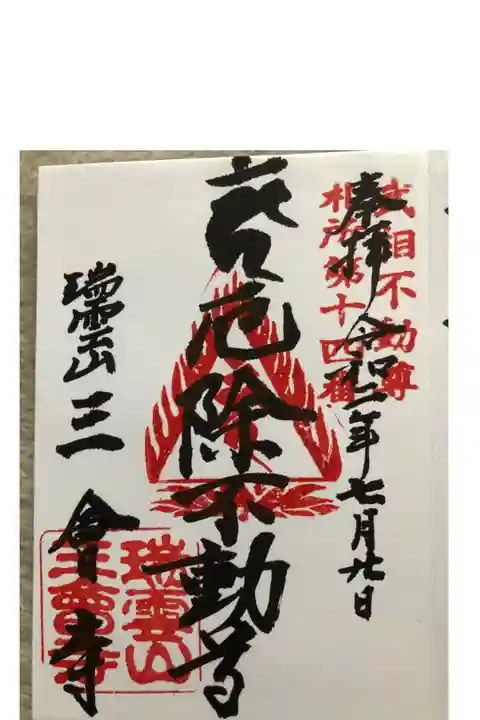 武相不動尊
札所第十四番
奉拝 令和二年七月廿日
厄除不動尊
瑞雲山 三會寺
瑞雲山
三會寺